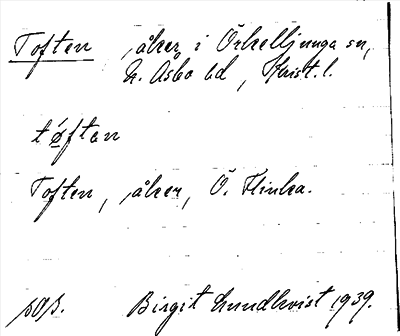 Toften, åker i Örkelljunga sn,
N. Åsbo hd, Krist. l.
tøftən
Toften, åker, Ö. Flinka.
Birgit Lundkvist 1939.